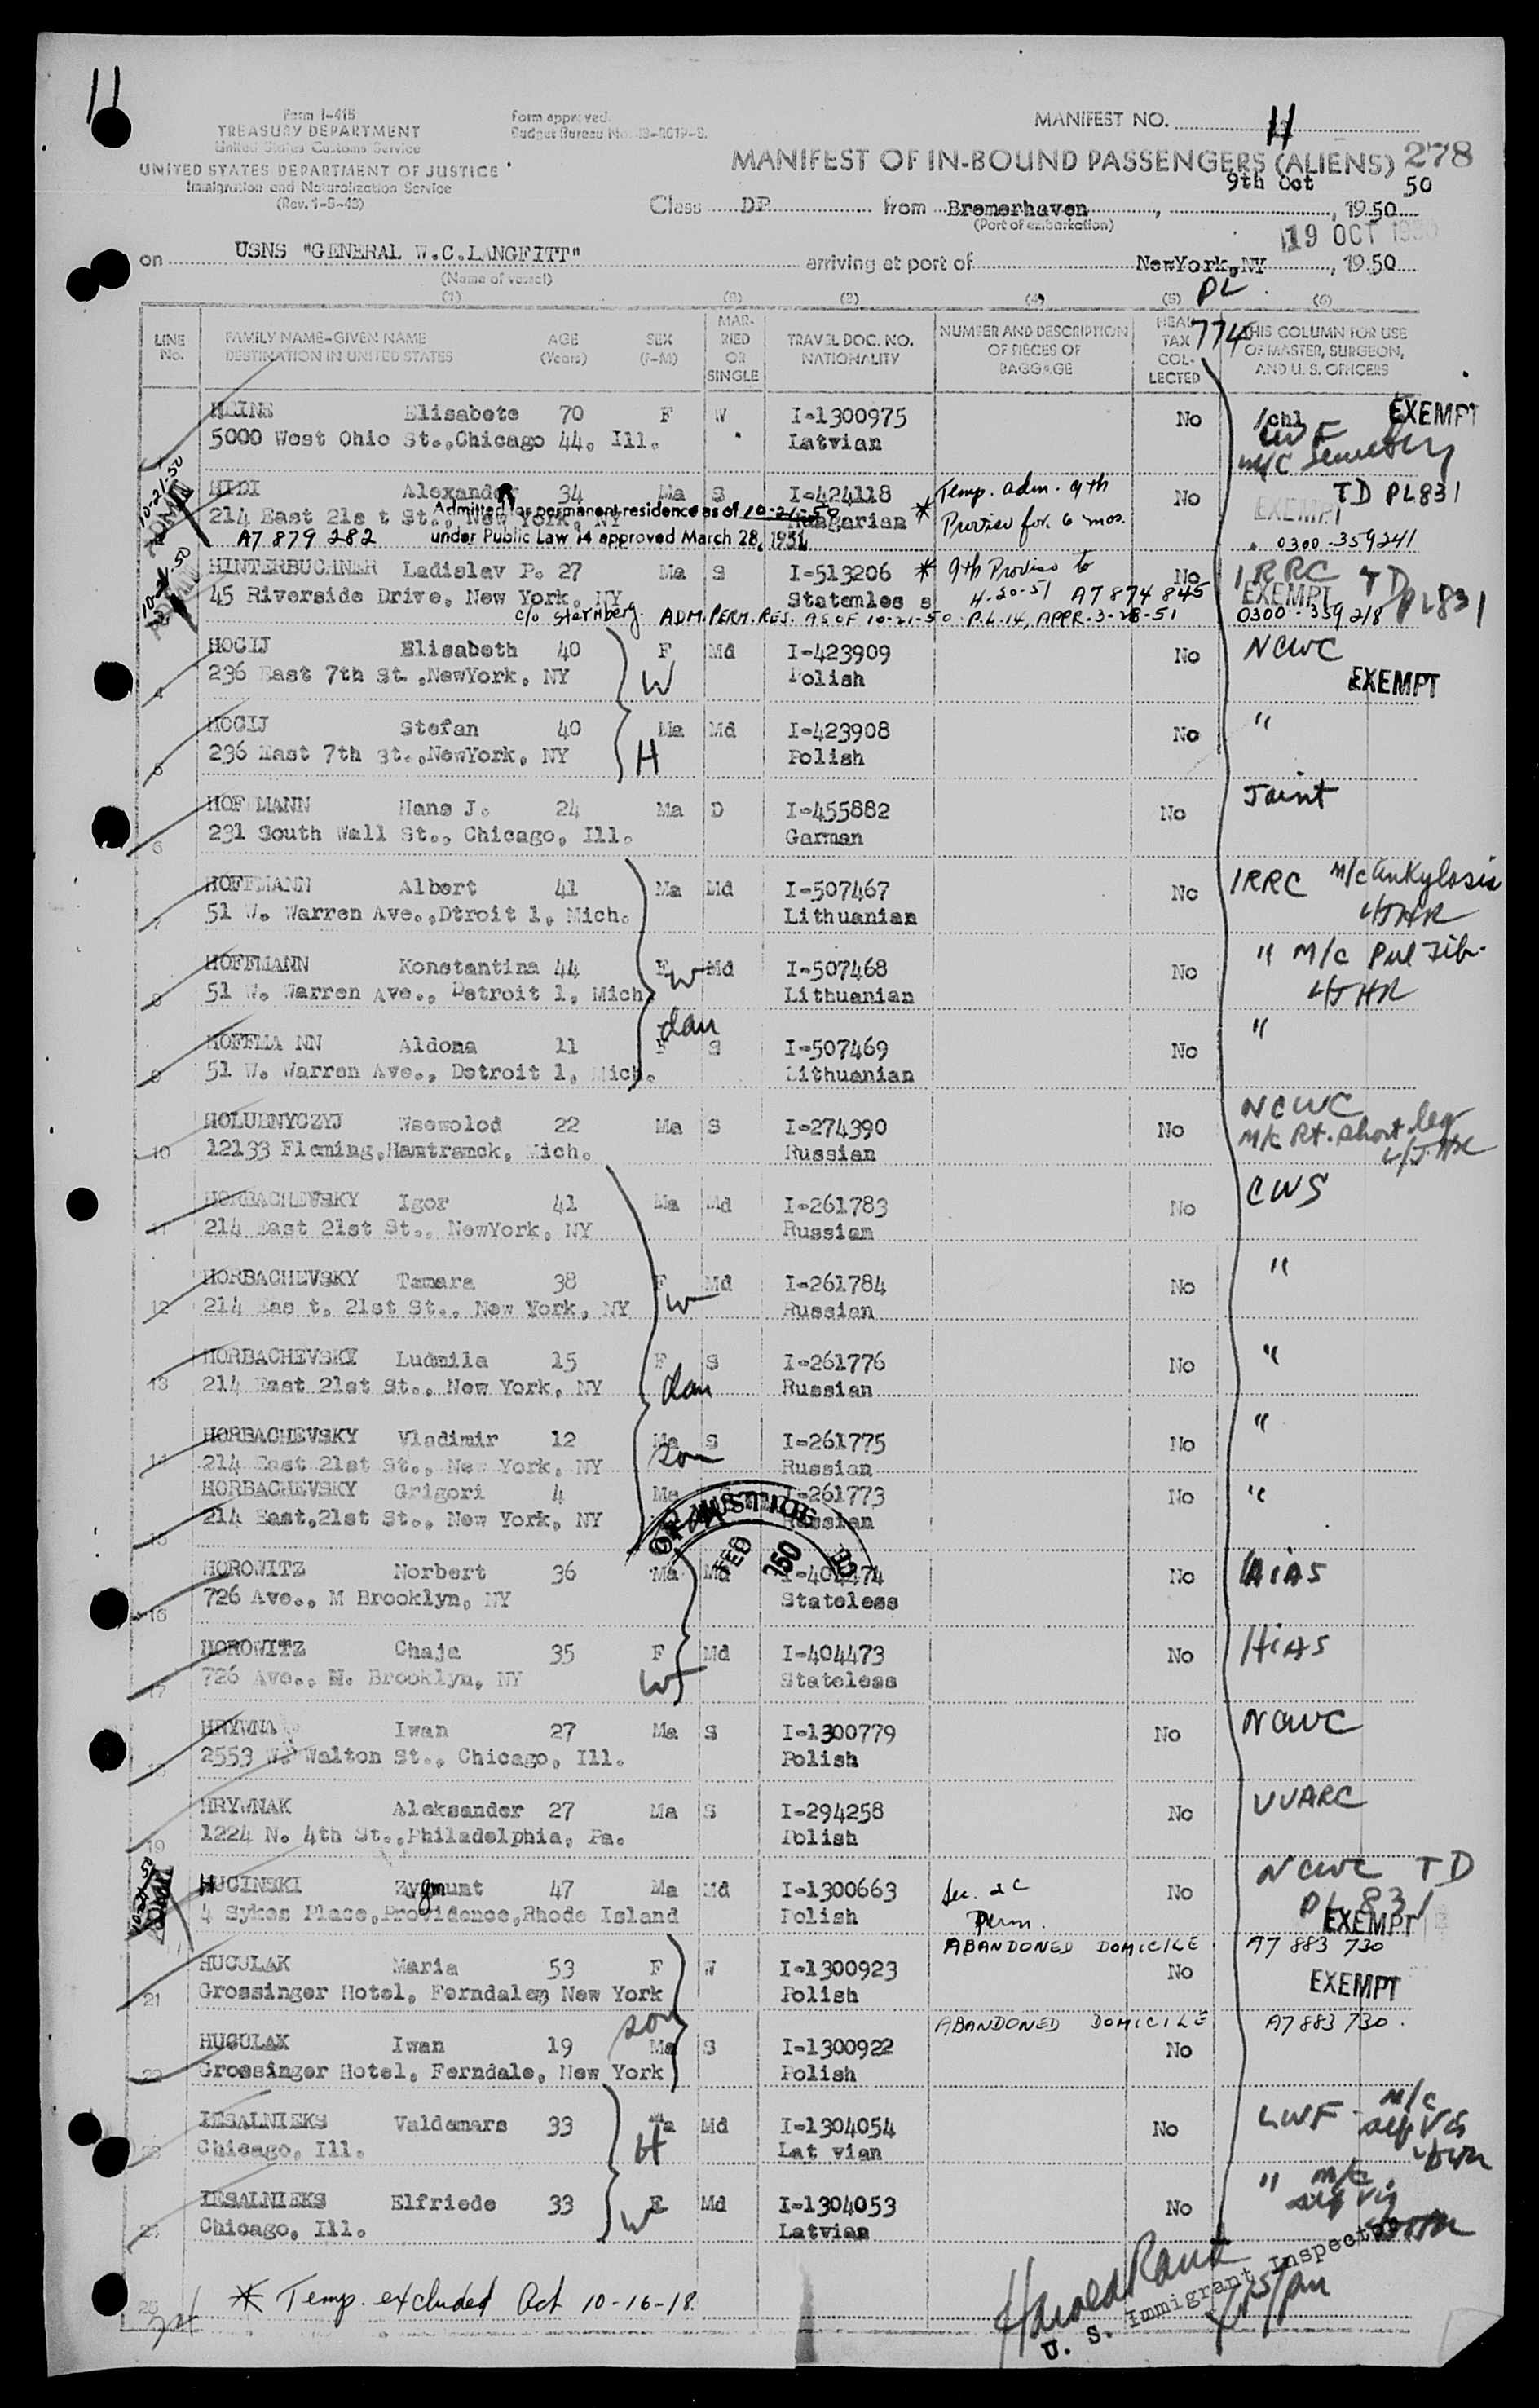 11
Form I-415
TREASURY DEPARTMENT
United States Customs Service
UNITED STATES DEPARTMENT OF JUSTICE
Immigration and Naturalization Service
(Rev. 1-5-49)
Form approved.
Budget Bureau No.
MANIFEST NO. H
MANIFEST OF IN-BOUND PASSENGERS (ALIENS) 278
Class DP from Bremerhaven, 9th Oct, 1950 50
(Port of embarkation)
19 OCT 1950
on USNS "GENERAL W.C.LANGFITT" arriving at port of NewYork,NY, 1950
(Name of vessel)
PL 774
(1) (2) (4) (5) (6)
LINE No.
FAMILY NAME-GIVEN NAME
DESTINATION IN UNITED STATES
AGE (Years)
SEX (F-M)
MARRIED OR SINGLE
TRAVEL DOC. NO. NATIONALITY
NUMBER AND DESCRIPTION OF PIECES OF BAGGAGE
HEAD TAX COLLECTED
THIS COLUMN FOR USE OF MASTER, SURGEON, AND U. S. OFFICERS
HEINE Elisabete 70 F W I-1300975 No EXEMPT
5000 West Ohio St.,Chicago 44, Ill. Latvian LWF
M/C Senility
10-21-50
HIDI Alexander 34 Ma S I-424118 Temp. adm. 9th No TD PL831
214 East 21s t St., New York, NY Hungarian * Proviso for 6 mos. EXEMPT
Admitted for permanent residence as of 10-21-50
A7 879 282 under Public Law 14 approved March 28, 1951 0300-359241
HINTERBUCHNER Ladislav P. 27 Ma S I-513206 * 9th Proviso to No IRRC TD
45 Riverside Drive, New York, NY Stateless s 4-20-51 A7 874 845 EXEMPT PL831
c/o Sternberg. ADM. PERM. RES. AS OF 10-21-50 P.L.14, APPR. 3-28-51 0300-359218
HOCIJ Elisabeth 40 F Md I-423909 No NCWC
4 236 East 7th St.,NewYork, NY W Polish EXEMPT
HOCIJ Stefan 40 Ma Md I-423908 No "
5 236 East 7th St.,NewYork, NY H Polish
HOFFMANN Hans J. 24 Ma D I-455882 No Joint
6 231 South Wall St., Chicago, Ill. German
HOFFMANN Albert 41 Ma Md I-507467 No IRRC M/C Ankylosis
7 51 W. Warren Ave.,Dtroit 1, Mich. Lithuanian
HOFFMANN Konstantina 44 F W Md I-507468 No " M/C Pul Fib.
8 51 W. Warren Ave., Detroit 1, Mich. Lithuanian
HOFFMA NN Aldona 11 F dau S I-507469 No "
9 51 W. Warren Ave., Detroit 1, Mich. Lithuanian
HOLUBNYCZYJ Wsewolod 22 Ma S I-274390 No NCWC
10 12133 Fleming,Hamtramck, Mich. Russian M/C Rt. short leg
HORBACHEVSKY Igor 41 Ma Md I-261783 No CWS
11 214 East 21st St., NewYork, NY Russian
HORBACHEVSKY Tamara 38 F Md I-261784 No "
12 214 Eas t, 21st St., New York, NY W Russian
HORBACHEVSKY Ludmila 15 F S I-261776 No "
13 214 East 21st St., New York, NY dau Russian
HORBACHEVSKY Vladimir 12 Ma S I-261775 No "
14 214 East 21st St., New York, NY son Russian
HORBACHEVSKY Grigori 4 Ma I-261773 No "
15 214 East,21st St., New York, NY Russian
OF JUSTICE
HOROWITZ Norbert 36 Ma Md I-404474 No HIAS
16 726 Ave., M Brooklyn, NY Stateless
HOROWITZ Chaja 35 F Md I-404473 No HIAS
17 726 Ave., M. Brooklyn, NY W Stateless
HRYWNA Iwan 27 Ma S I-1300779 No NCWC
2553 W. Walton St., Chicago, Ill. Polish
HRYWNAK Aleksander 27 Ma S I-294258 No UUARC
19 1224 N. 4th St.,Philadelphia, Pa. Polish
HUCINSKI Zygmunt 47 Ma Md I-1300663 Sec. 2c No NCWC TD
4 Sykes Place,Providence,Rhode Island Polish Perm. PL 831
EXEMPT
ABANDONED DOMICILE A7 883 730
HUCULAK Maria 53 F W I-1300923 No EXEMPT
21 Grossinger Hotel, Ferndale, New York Polish
ABANDONED DOMICILE A7 883 730.
HUCULAK Iwan 19 son Ma S I-1300922 No
22 Grossinger Hotel, Ferndale, New York Polish
IESALNIEKS Valdemars 33 Ma Md I-1304054 No LWF - M/C
23 Chicago, Ill. H Lat vian def Vis
IESALNIEKS Elfriede 33 F Md I-1304053 No " M/C
24 Chicago, Ill. W Latvian def Vis
25 * Temp. excluded Oct 10-16-18.
Harold Rank
U. S. Immigrant Inspector